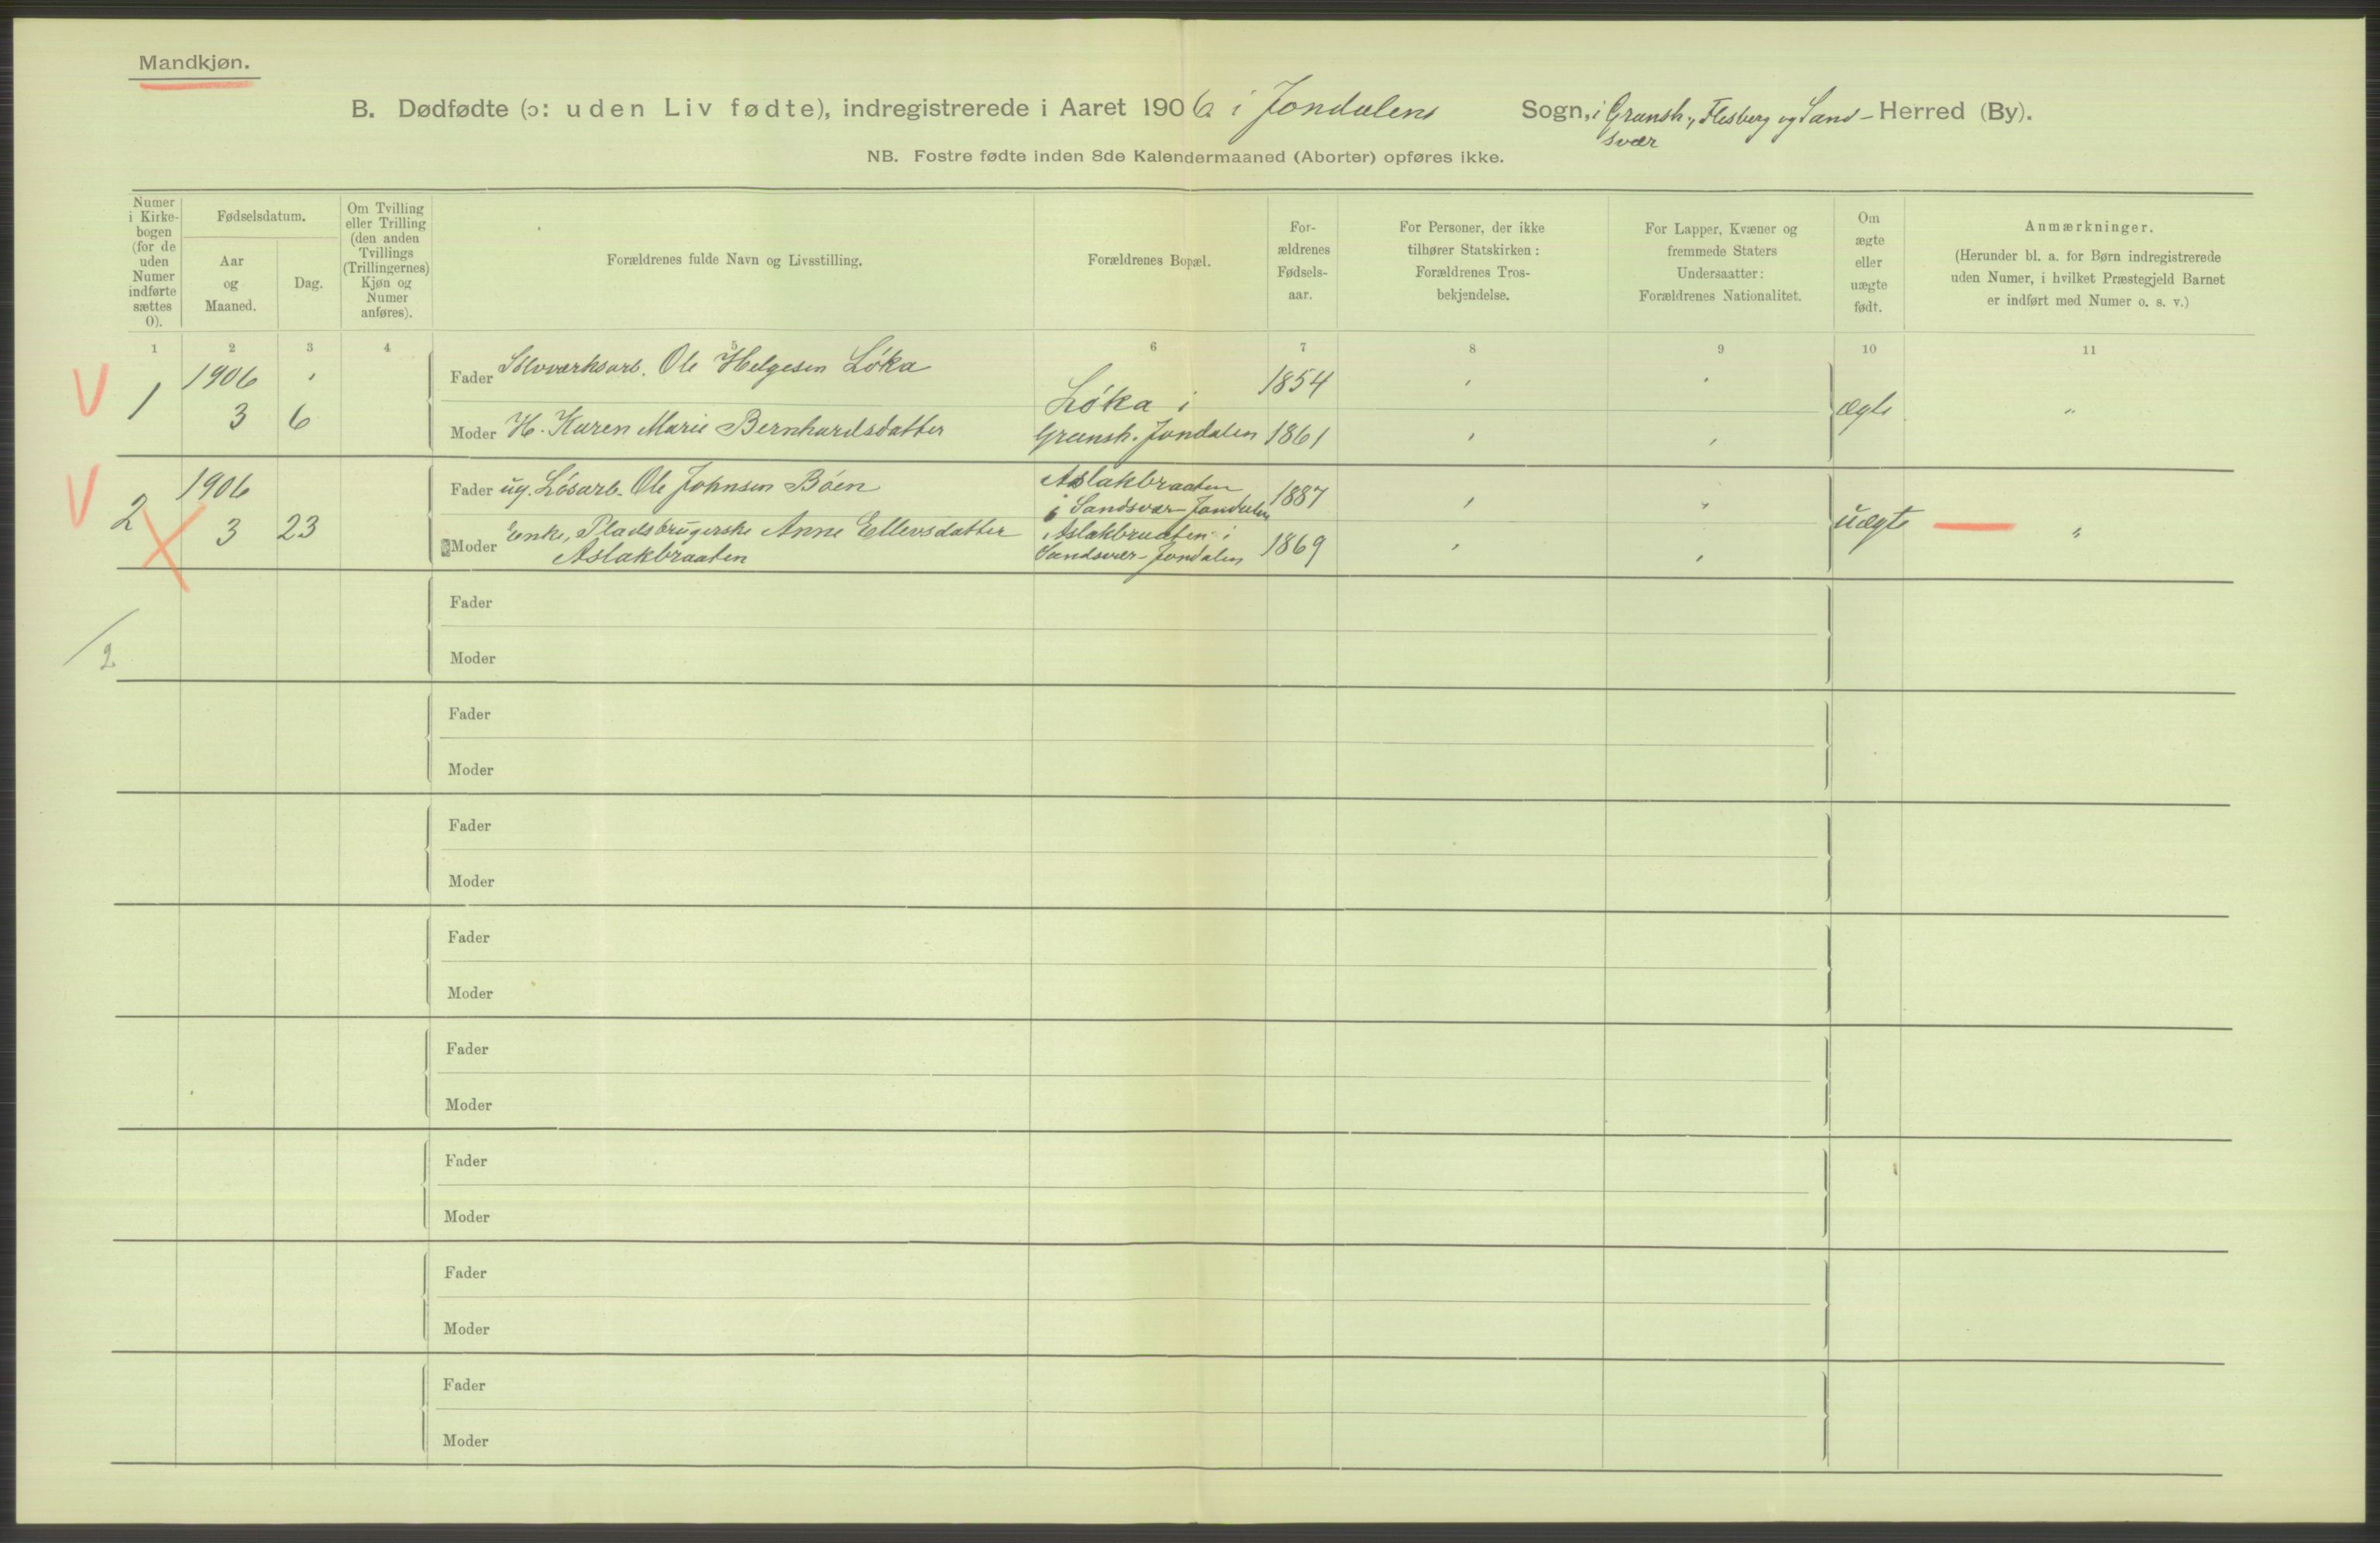 Mandkjøn.
B. Dødfødte (ɔ: uden Liv fødte), indregistrerede i Aaret 1906 i Jondalens Sogn, i Gransh., Flesberg og Sand- Herred (By).
svær
NB. Fostre fødte inden 8de Kalendermaaned (Aborter) opføres ikke.
Numer
i Kirke-
bogen
(for de
uden
Numer
indførte
sættes
0).
Fødselsdatum.
Aar
og
Maaned.
Dag.
Om Tvilling
eller Trilling
(den anden
Tvillings
(Trillingernes)
Kjøn og
Numer
anføres).
Forældrenes fulde Navn og Livsstilling.
Forældrenes Bopæl.
For-
ældrenes
Fødsels-
aar.
For Personer, der ikke
tilhører Statskirken:
Forældrenes Tros-
bekjendelse.
For Lapper, Kvæner og
fremmede Staters
Undersaatter:
Forældrenes Nationalitet.
Om
ægte
eller
uægte
født.
Anmærkninger.
(Herunder bl. a. for Børn indregistrerede
uden Numer, i hvilket Præstegjeld Barnet
er indført med Numer o. s. v.)
1 2 3 4 5 6 7 8 9 10 11
V 1
1906 '
3 6
Fader Sølvværksarb. Ole Helgesen Løka
Moder H. Karen Marie Bernhardsdatter
Løka i
Gransh. Jondalen
1854 ' '
1861 ' '
ægte "
V 2 X
1906
3 23
Fader ug. Løsarb. Ole Johnsen Bøen
Moder Enke, Pladsbrugerske Anne Ellevsdatter
Aslakbraaten
Aslakbraaten
i Sandsvær-Jondalen
Aslakbraaten i
Sandsvær-Jondalen
1887 ' "
1869 ' '
uægte "
/2
Fader
Moder
Fader
Moder
Fader
Moder
Fader
Moder
Fader
Moder
Fader
Moder
Fader
Moder
Fader
Moder